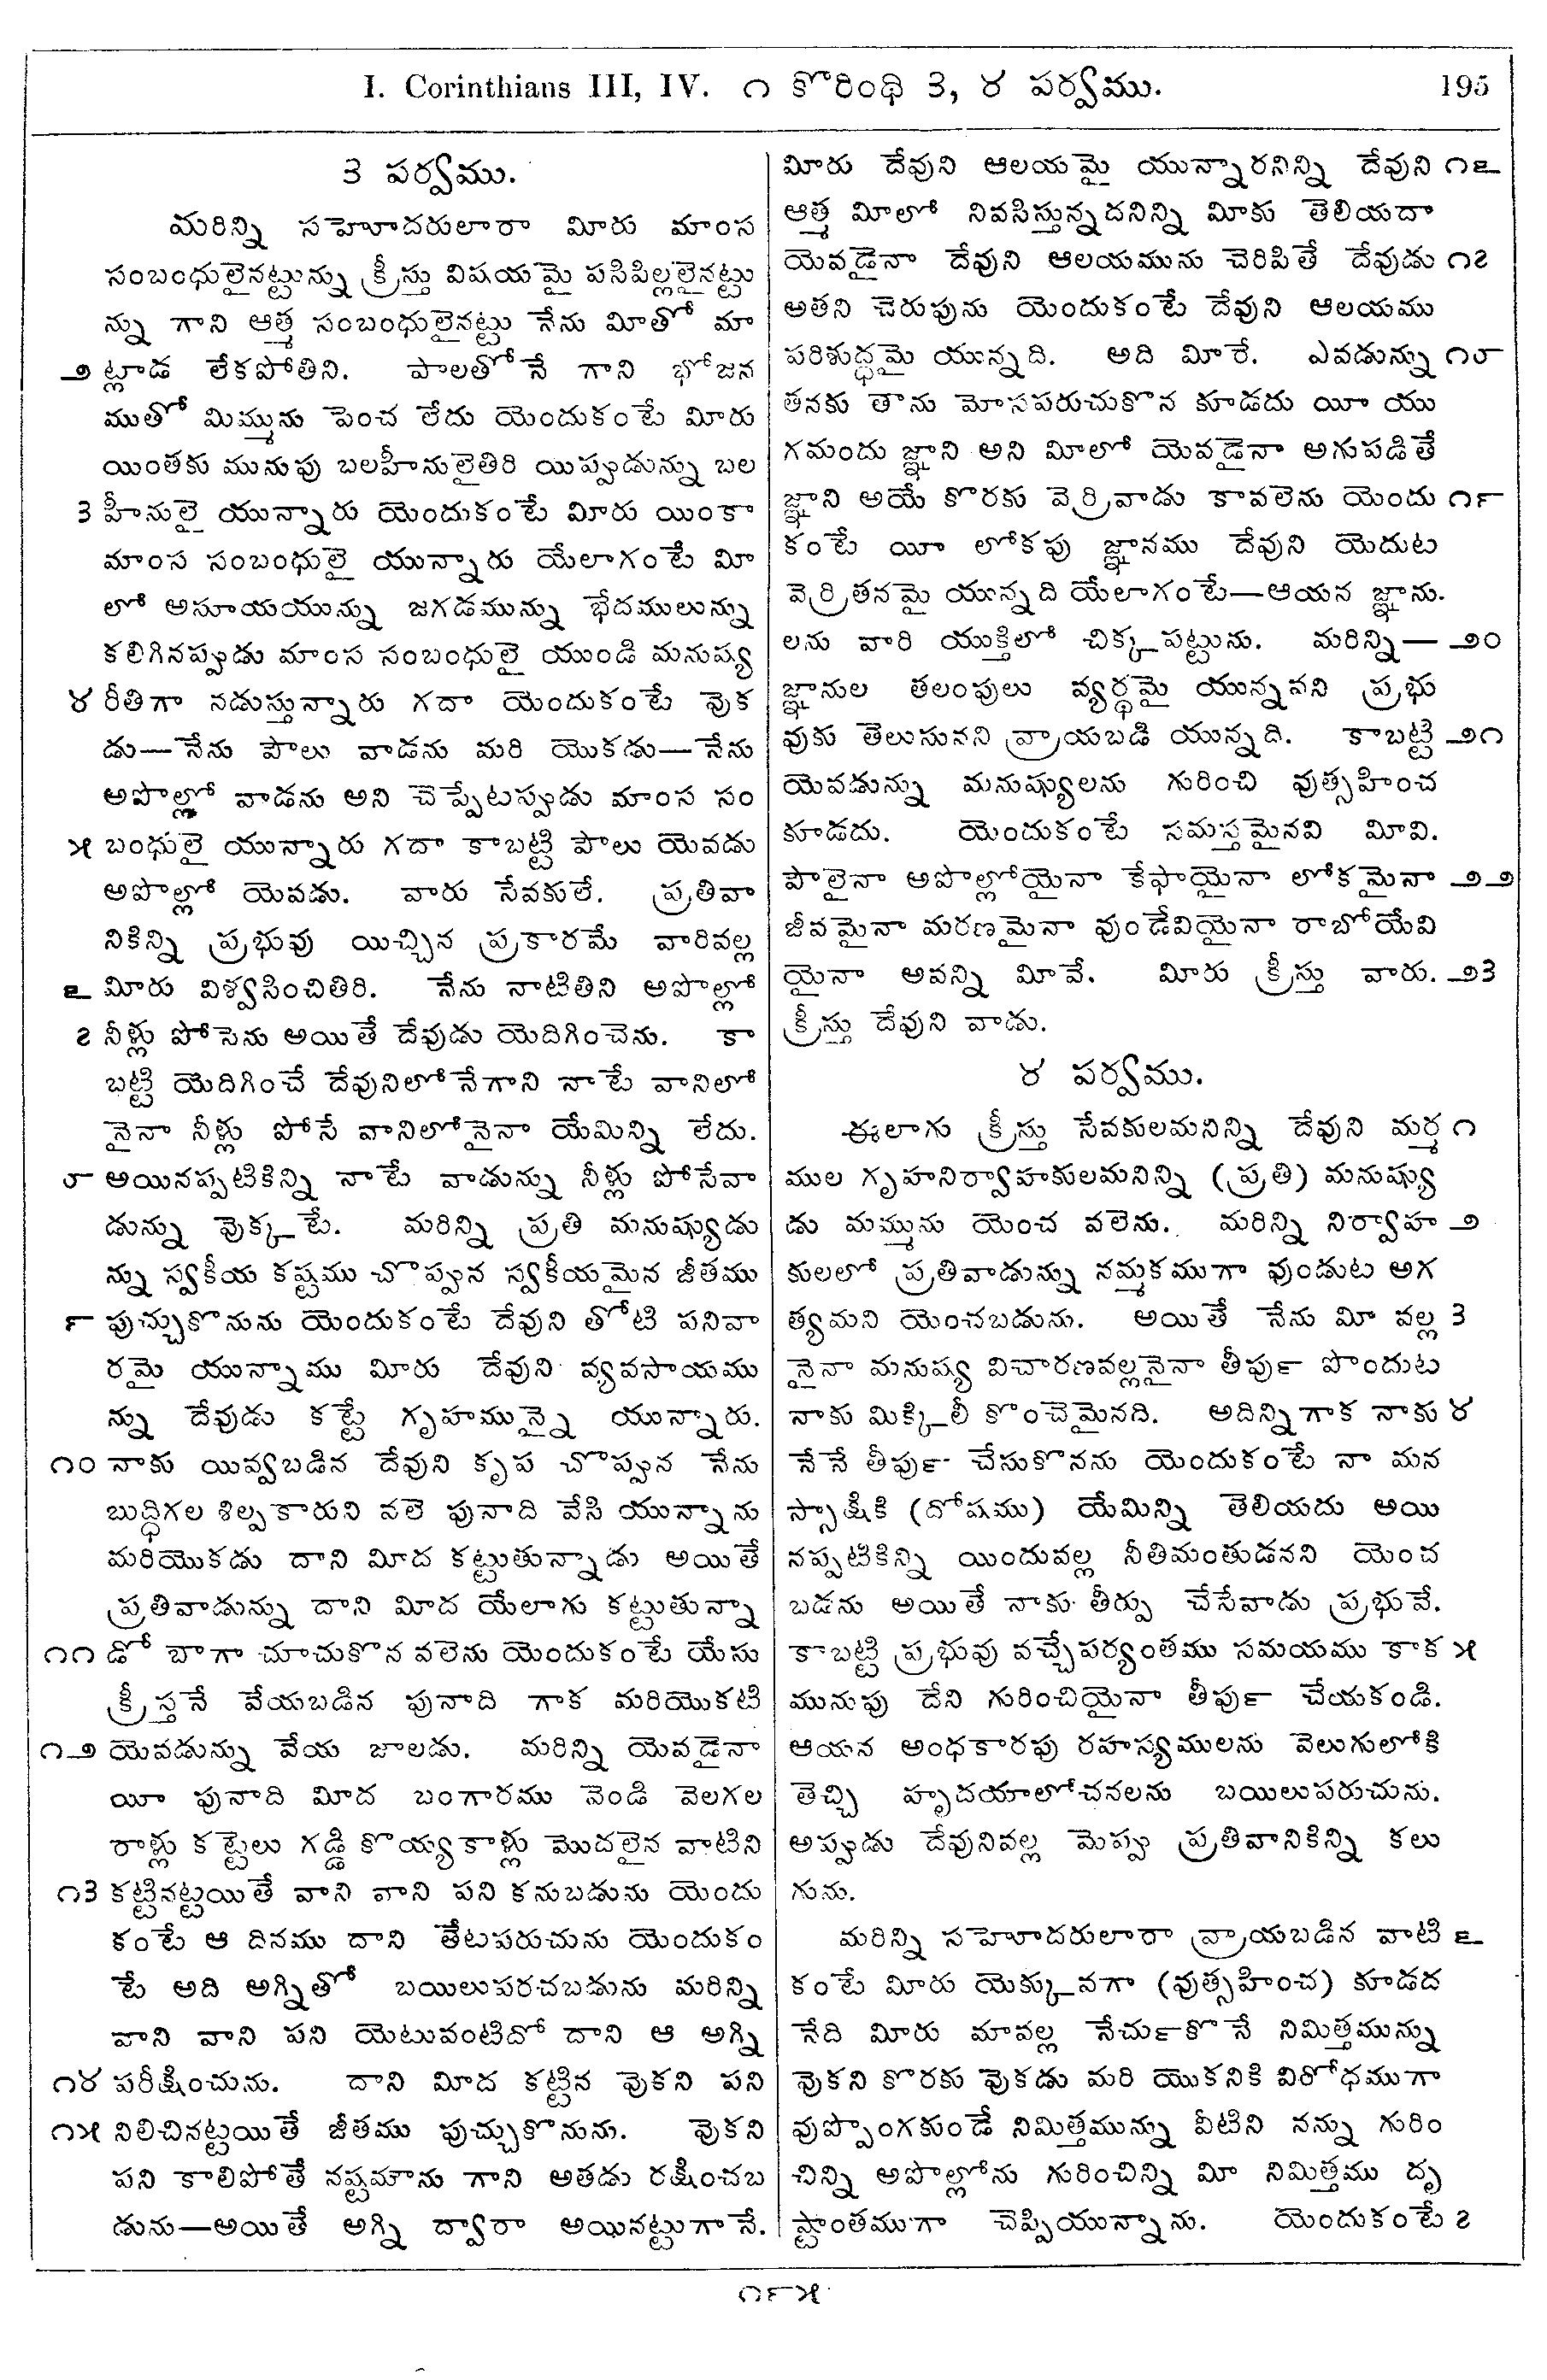 I. Corinthians III, IV. ౧ కొరింథి ౩, ౪ పర్వము. 195
౩ పర్వము.
మరిన్ని సహోదరులారా మీరు మాంస
సంబంధులైనట్టున్ను క్రీస్తు విషయమై పసిపిల్లలైనట్టు
న్ను గాని ఆత్మ సంబంధులైనట్టు నేను మీతో మా
౨ ట్లాడ లేకపోతిని. పాలతోనే గాని భోజన
ముతో మిమ్మును పెంచ లేదు యెందుకంటే మీరు
యింతకు మునుపు బలహీనులైతిరి యిప్పుడున్ను బల
౩ హీనులై యున్నారు యెందుకంటే మీరు యింకా
మాంస సంబంధులై యున్నారు యేలాగంటే మీ
లో అసూయయున్ను జగడమున్ను భేదములున్ను
కలిగినప్పుడు మాంస సంబంధులై యుండి మనుష్య
౪ రీతిగా నడుస్తున్నారు గదా యెందుకంటే వొక
డు—నేను పౌలు వాడను మరి యొకడు—నేను
అపొల్లో వాడను అని చెప్పేటప్పుడు మాంస సం
౫ బంధులై యున్నారు గదా కాబట్టి పౌలు యెవడు
అపొల్లో యెవడు. వారు సేవకులే. ప్రతివా
నికిన్ని ప్రభువు యిచ్చిన ప్రకారమే వారివల్ల
౬ మీరు విశ్వసించితిరి. నేను నాటితిని అపొల్లో
౭ నీళ్లు పోసెను అయితే దేవుడు యెదిగించెను. కా
బట్టి యెదిగించే దేవునిలోనేగాని నాటే వానిలో
నైనా నీళ్లు పోసే వానిలోనైనా యేమిన్ని లేదు.
౮ అయినప్పటికిన్ని నాటే వాడున్ను నీళ్లు పోసేవా
డున్ను వొక్కటే. మరిన్ని ప్రతి మనుష్యుడు
న్ను స్వకీయ కష్టము చొప్పున స్వకీయమైన జీతము
౯ పుచ్చుకొనును యెందుకంటే దేవుని తోటి పనివా
రమై యున్నాము మీరు దేవుని వ్యవసాయము
న్ను దేవుడు కట్టే గృహమున్నై యున్నారు.
౧౦ నాకు యివ్వబడిన దేవుని కృప చొప్పున నేను
బుద్ధిగల శిల్పకారుని వలె పునాది వేసి యున్నాను
మరియొకడు దాని మీద కట్టుతున్నాడు అయితే
ప్రతివాడున్ను దాని మీద యేలాగు కట్టుతున్నా
౧౧ డో బాగా చూచుకొన వలెను యెందుకంటే యేసు
క్రీస్తనే వేయబడిన పునాది గాక మరియొకటి
౧౨ యెవడున్ను వేయ జాలడు. మరిన్ని యెవడైనా
యీ పునాది మీద బంగారము వెండి వెలగల
రాళ్లు కట్టెలు గడ్డి కొయ్యకాళ్లు మొదలైన వాటిని
౧౩ కట్టినట్టయితే వాని వాని పని కనుబడును యెందు
కంటే ఆ దినము దాని తేటపరుచును యెందుకం
టే అది అగ్నితో బయిలుపరచబడును మరిన్ని
వాని వాని పని యెటువంటిదో దాని ఆ అగ్ని
౧౪ పరీక్షించును. దాని మీద కట్టిన వొకని పని
౧౫ నిలిచినట్టయితే జీతము పుచ్చుకొనును. వొకని
పని కాలిపోతే నష్టమౌను గాని అతడు రక్షించబ
డును—అయితే అగ్ని ద్వారా అయినట్టుగానే.
మీరు దేవుని ఆలయమై యున్నారనిన్ని దేవుని ౧౬
ఆత్మ మీలో నివసిస్తున్నదనిన్ని మీకు తెలియదా
యెవడైనా దేవుని ఆలయమును చెరిపితే దేవుడు ౧౭
అతని చెరుపును యెందుకంటే దేవుని ఆలయము
పరిశుద్ధమై యున్నది. అది మీరే. ఎవడున్ను ౧౮
తనకు తాను మోసపరుచుకొన కూడదు యీ యు
గమందు జ్ఞాని అని మీలో యెవడైనా అగుపడితే
జ్ఞాని అయే కొరకు వెర్రివాడు కావలెను యెందు ౧౯
కంటే యీ లోకపు జ్ఞానము దేవుని యెదుట
వెర్రితనమై యున్నది యేలాగంటే—ఆయన జ్ఞాను.
లను వారి యుక్తిలో చిక్కపట్టును. మరిన్ని— ౨౦
జ్ఞానుల తలంపులు వ్యర్థమై యున్నవని ప్రభు
వుకు తెలుసునని వ్రాయబడి యున్నది. కాబట్టి ౨౧
యెవడున్ను మనుష్యులను గురించి వుత్సహించ
కూడదు. యెందుకంటే సమస్తమైనవి మీవి.
పౌలైనా అపొల్లోయైనా కేఫాయైనా లోకమైనా ౨౨
జీవమైనా మరణమైనా వుండేవియైనా రాబోయేవి
యైనా అవన్ని మీవే. మీరు క్రీస్తు వారు. ౨౩
క్రీస్తు దేవుని వాడు.
౪ పర్వము.
ఈలాగు క్రీస్తు సేవకులమనిన్ని దేవుని మర్మ ౧
ముల గృహనిర్వాహకులమనిన్ని (ప్రతి) మనుష్యు
డు మమ్మును యెంచ వలెను. మరిన్ని నిర్వాహ ౨
కులలో ప్రతివాడున్ను నమ్మకముగా వుండుట అగ
త్యమని యెంచబడును. అయితే నేను మీ వల్ల ౩
నైనా మనుష్య విచారణవల్లనైనా తీపుర్ పొందుట
నాకు మిక్కిలీ కొంచెమైనది. అదిన్నిగాక నాకు ౪
నేనే తీపుర్ చేసుకొనను యెందుకంటే నా మన
స్సాక్షికి (దోషము) యేమిన్ని తెలియదు అయి
నప్పటికిన్ని యిందువల్ల నీతిమంతుడనని యెంచ
బడను అయితే నాకు తీర్పు చేసేవాడు ప్రభువే.
కాబట్టి ప్రభువు వచ్చేపర్యంతము సమయము కాక ౫
మునుపు దేని గురించియైనా తీపుర్ చేయకండి.
ఆయన అంధకారపు రహస్యములను వెలుగులోకి
తెచ్చి హృదయాలోచనలను బయిలుపరుచును.
అప్పుడు దేవునివల్ల మెప్పు ప్రతివానికిన్ని కలు
గును.
మరిన్ని సహోదరులారా వ్రాయబడిన వాటి ౬
కంటే మీరు యెక్కువగా (వుత్సహించ) కూడద
నేది మీరు మావల్ల నేచుర్కొనే నిమిత్తమున్ను
వొకని కొరకు వొకడు మరి యొకనికి విరోధముగా
వుప్పొంగకుండే నిమిత్తమున్ను వీటిని నన్ను గురిం
చిన్ని అపొల్లోను గురించిన్ని మీ నిమిత్తము దృ
ష్టాంతముగా చెప్పియున్నాను. యెందుకంటే ౭
౧౯౫